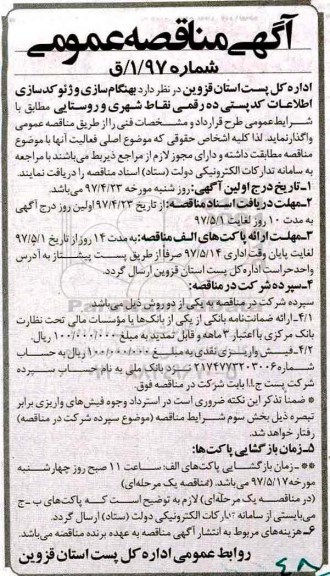 آگهی مناقصه عمومی
شماره ۱/۹۷/ق
اداره کل پست استان قزوین در نظر دارد بهنگام سازی و ژئوکدسازی
اطلاعات کدپستی ده رقمی نقاط شهری و روستایی مطابق با
شرایط عمومی طرح قرارداد و مشخصات فنی را از طریق مناقصه عمومی
واگذار نماید. لذا کلیه اشخاص حقوقی که موضوع اصلی فعالیت آنها با موضوع
مناقصه مطابقت داشته و دارای مجوز لازم از مراجع ذیربط می‌باشند با مراجعه
به سامانه تدارکات الکترونیکی دولت (ستاد) اسناد مناقصه را دریافت نمایند.
۱-تاریخ درج اولین آگهی: روز شنبه مورخه ۹۷/۴/۲۳ می‌باشد.
۲-مهلت دریافت اسناد مناقصه: از تاریخ ۹۷/۴/۲۳ اولین روز درج آگهی
به مدت ۱۰ روز لغایت ۹۷/۵/۱
۳-مهلت ارائه پاکت‌های الف مناقصه: به مدت ۱۴ روز از تاریخ ۹۷/۵/۱
لغایت پایان وقت اداری ۹۷/۵/۱۴ صرفاً از طریق پست پیشتاز به آدرس
واحد حراست اداره کل پست استان قزوین ارسال گردد.
۴-سپرده شرکت در مناقصه:
سپرده شرکت در مناقصه به یکی از دو روش ذیل می‌باشد.
۴/۱-ارائه ضمانت‌نامه بانکی از یکی از بانک‌ها یا مؤسسات مالی تحت نظارت
بانک مرکزی با اعتبار ۳ ماهه و قابل تمدید به مبلغ ۱۰۰/۰۰۰/۰۰۰ ریال.
۴/۲-فیش واریزی نقدی به مبلغ ۱۰۰/۰۰۰/۰۰۰ ریال به حساب
شماره ۲۱۷۴۷۷۲۰۳۰۰۶ نزد بانک ملی به نام حساب سپرده
شرکت پست ج.ا.ا بابت شرکت در مناقصه فوق.
* ضمنا تذکر این نکته ضروری است در استرداد وجوه فیش‌های واریزی برابر
تبصره ذیل بخش سوم شرایط مناقصه (موضوع سپرده شرکت در مناقصه)
رفتار خواهد شد.
۵-زمان بازگشایی پاکت‌ها:
**-زمان بازگشایی پاکت‌های الف: ساعت ۱۱ صبح روز چهارشنبه
مورخه ۹۷/۵/۱۷ می‌باشد. (مناقصه یک مرحله‌ای)
(در مناقصه یک مرحله‌ای) لازم به توضیح است که پاکت‌های ب -ج
می‌بایستی از سامانه تدارکات الکترونیکی دولت (ستاد) ارسال گردد.
۶-هزینه‌های مربوط به انتشار آگهی مناقصه به عهده برنده مناقصه می‌باشد.
روابط عمومی اداره کل پست استان قزوین